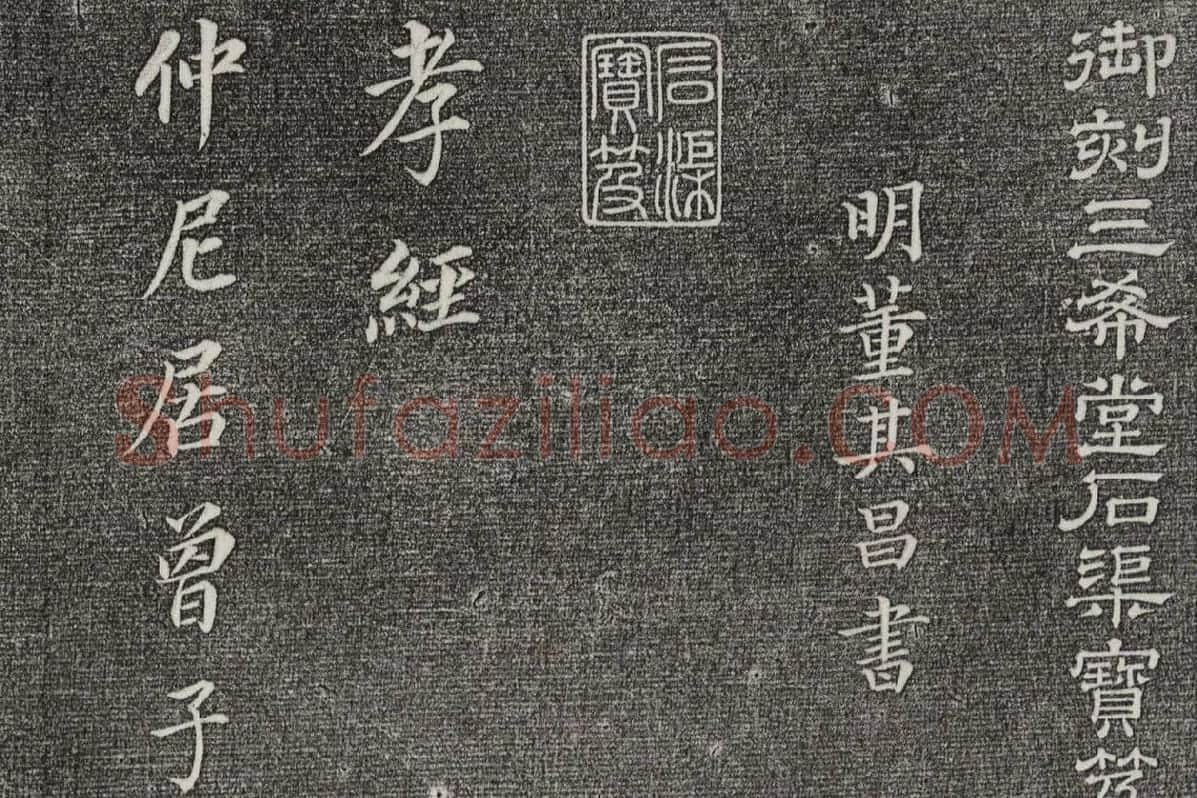 御刻三希堂石渠寶笈
明董其昌書
石渠
寶笈
孝經
仲尼居曾子
Shufaziliao.COM